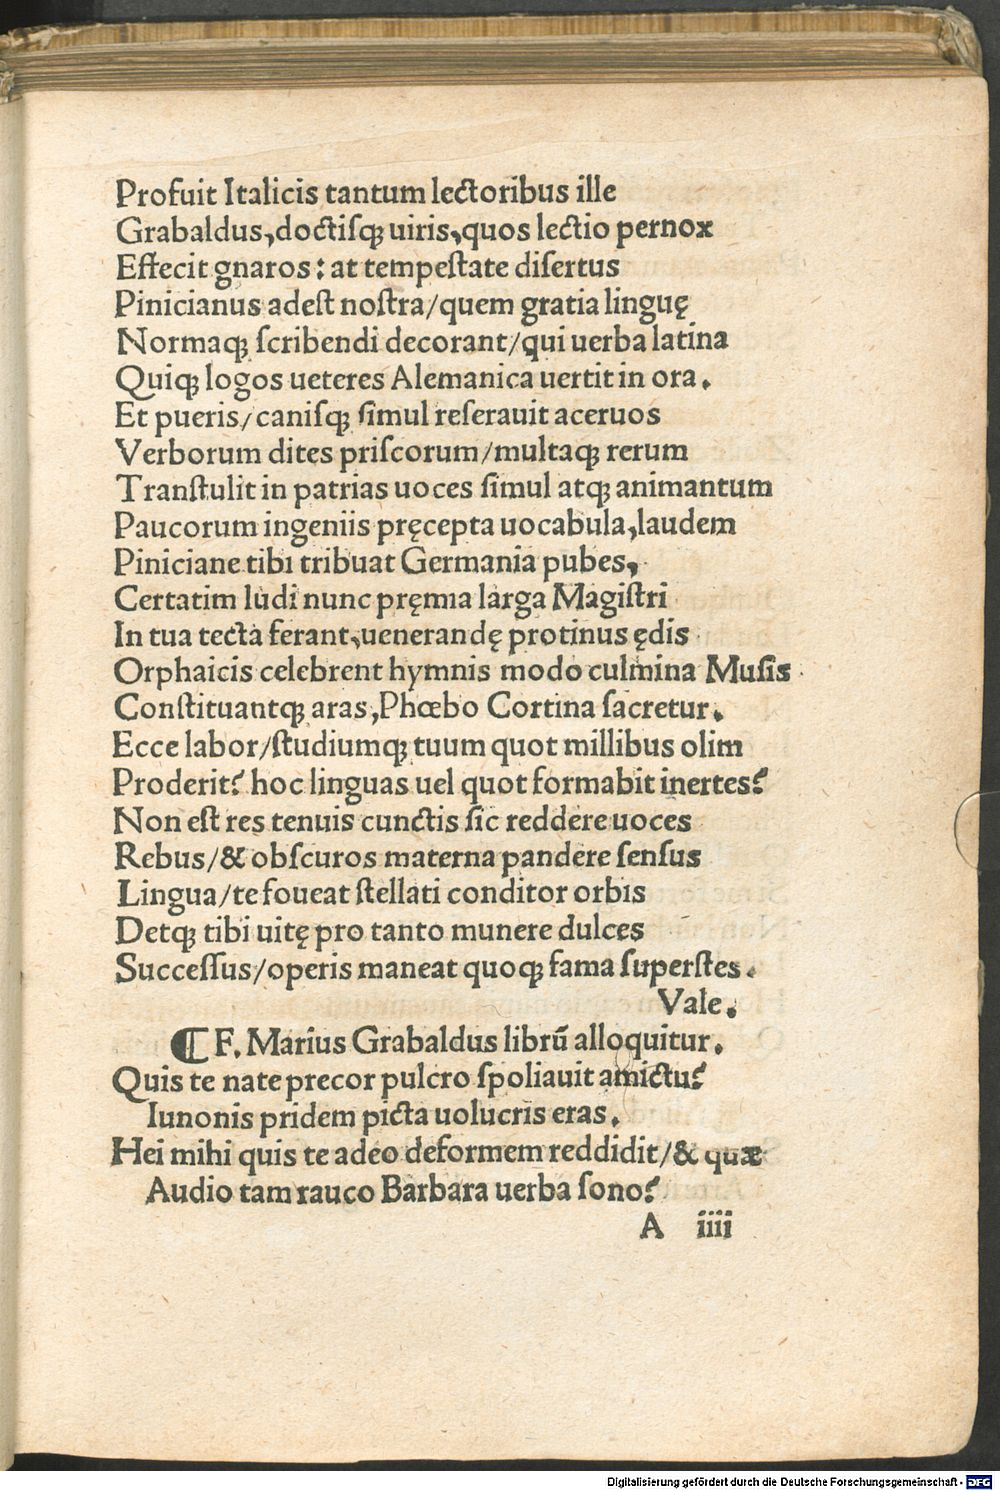 Profuit Italicis tantum lectoribus ille
Grabaldus, doctiſqꝫ uiris, quos lectio pernox
Effecit gnaros: at tempeſtate diſertus
Pinicianus adeſt noſtra/quem gratia linguę
Normaqꝫ ſcribendi decorant/qui uerba latina
Quiqꝫ logos ueteres Alemanica uertit in ora.
Et pueris/caniſqꝫ ſimul reſerauit aceruos
Verborum dites priſcorum/multaqꝫ rerum
Tranſtulit in patrias uoces ſimul atqꝫ animantum
Paucorum ingeniis pręcepta uocabula, laudem
Piniciane tibi tribuat Germania pubes,
Certatim ludi nunc pręmia larga Magiſtri
In tua tecta ferant, uenerandę protinus ędis
Orphaicis celebrent hymnis modo culmina Muſis
Conſtituantqꝫ aras, Phœbo Cortina ſacretur.
Ecce labor/ſtudiumqꝫ tuum quot millibus olim
Proderit? hoc linguas uel quot formabit inertes?
Non eſt res tenuis cunctis ſic reddere uoces
Rebus/& obſcuros materna pandere ſenſus
Lingua/te foueat ſtellati conditor orbis
Detqꝫ tibi uitę pro tanto munere dulces
Succeſſus/operis maneat quoqꝫ fama ſuperſtes.
Vale.
¶ F. Marius Grabaldus librū alloquitur.
Quis te nate precor pulcro ſpoliauit amictu?
Iunonis pridem picta uolucris eras.
Hei mihi quis te adeo deformem reddidit/& quæ
Audio tam rauco Barbara uerba ſono?
A iiii
Digitalisierung gefördert durch die Deutsche Forschungsgemeinschaft - DFG